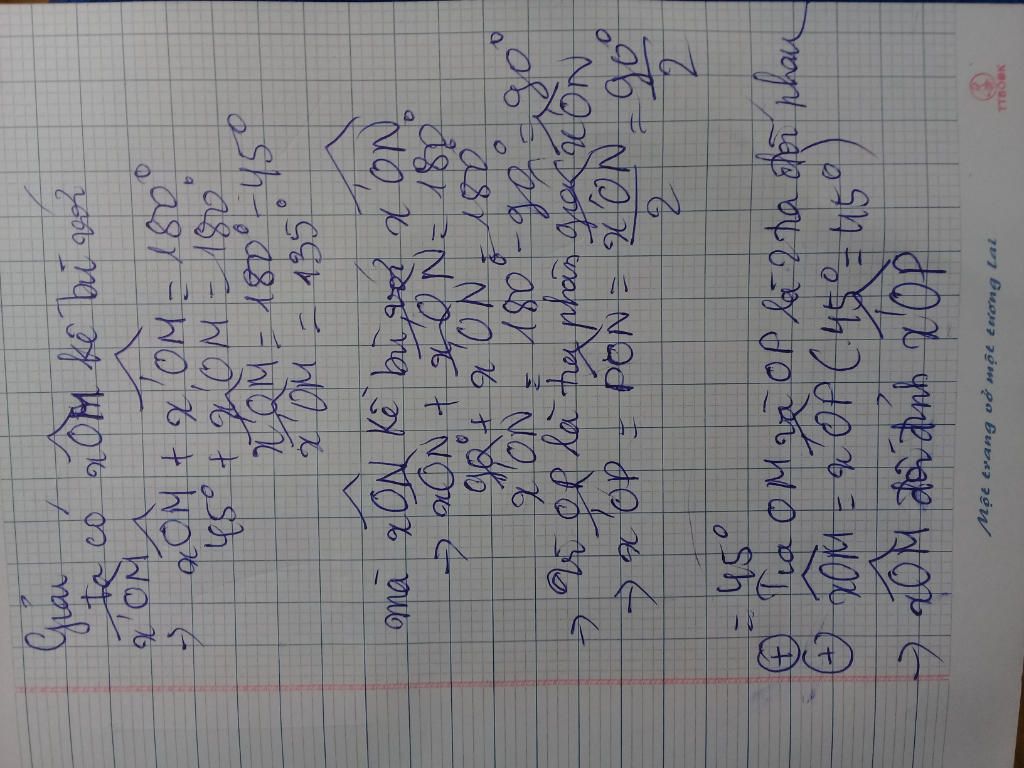 Giải
ta có xOM kề bù với
x'OM
→ xOM + x'OM = 180°
45° + x'OM = 180°
x'OM = 180° - 45°
x'OM = 135°
mà xON kề bù với x'ON
→ xON + x'ON = 180°
90° + x'ON = 180°
x'ON = 180° - 90° = 90°
→ Vì OP là tia phân giác x'ON
→ x'OP = PON = x'ON/2 = 90°/2
= 45°
+ Tia OM và OP là 2 tia đối nhau
+ xOM = x'OP (45° = 45°)
→ xOM đối đỉnh x'OP
Một trang vở một tương lai
TTBOOK